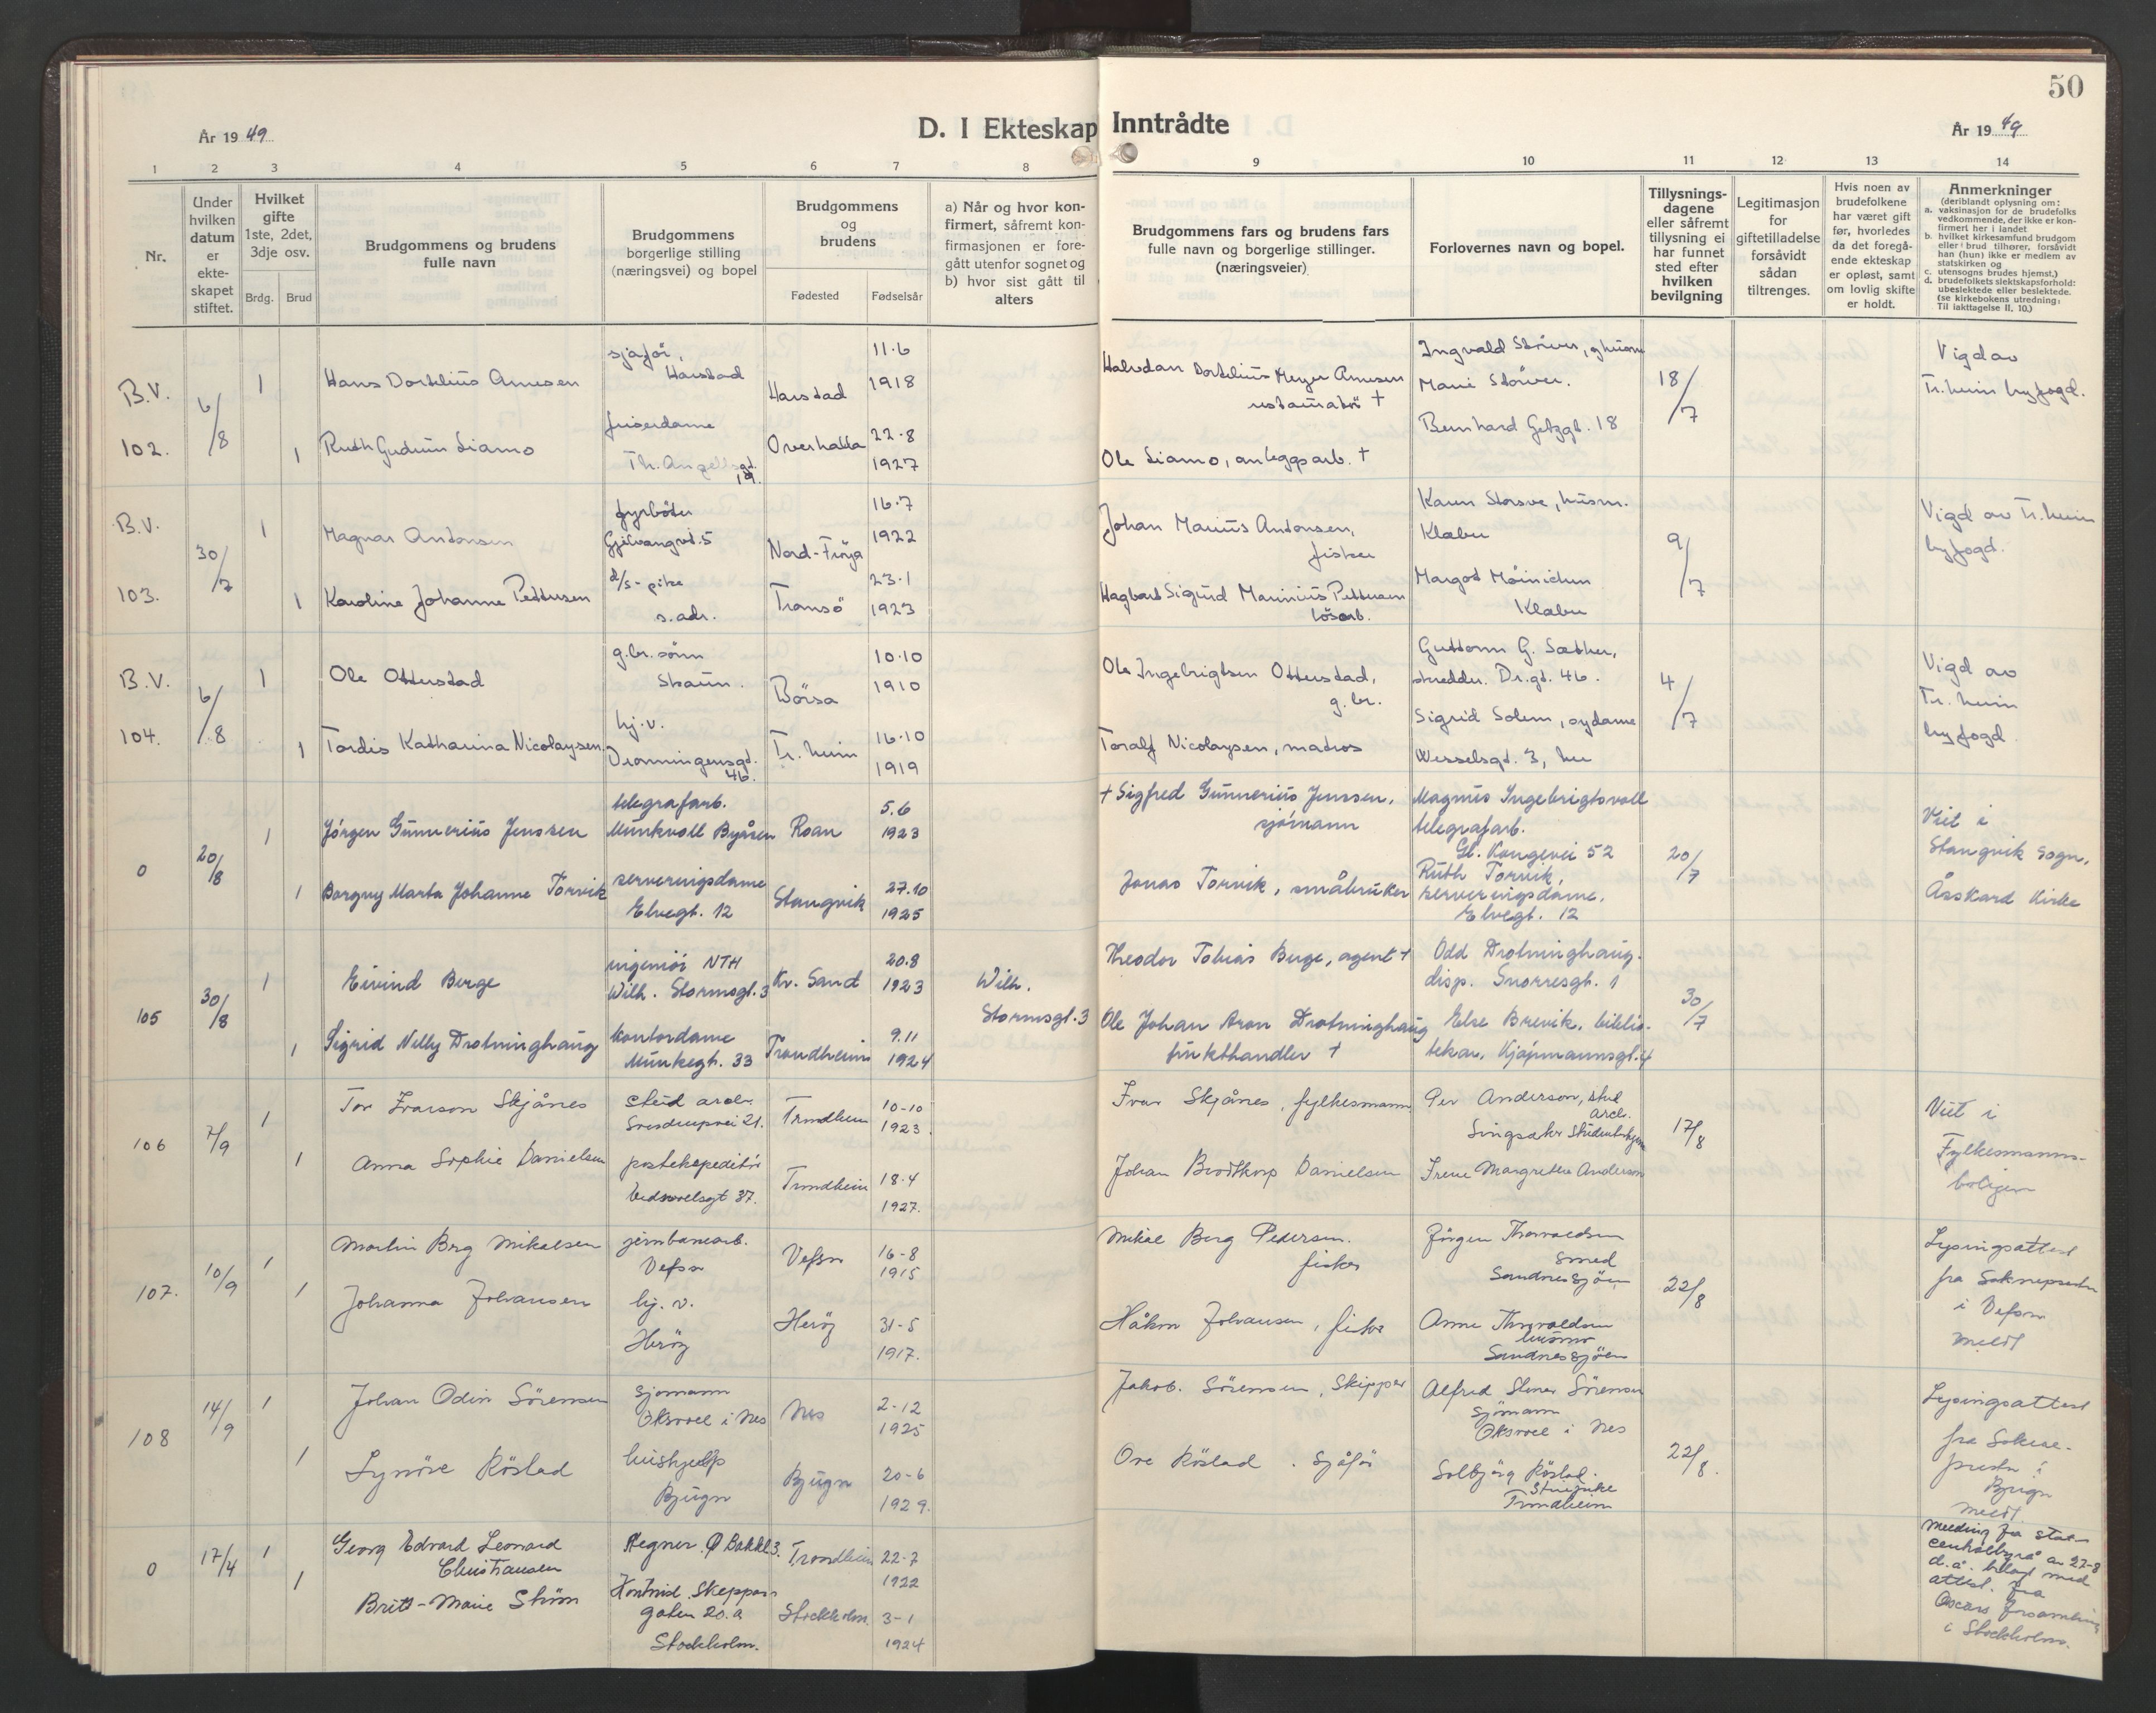 50
År 1949
D. I Ekteskap Inntrådte
År 1949
1 2 3 4 5 6 7 8 9 10 11 12 13 14
Nr.
Under hvilken datum er ekte-skapet stiftet.
Hvilket gifte 1ste, 2det, 3dje osv.
Brdg. Brud
Brudgommens og brudens fulle navn
Brudgommens borgerlige stilling (næringsvei) og bopel
Brudgommens og brudens
Fødested Fødselsår
a) Når og hvor kon-firmert, såfremt kon-firmasjonen er fore-gått utenfor sognet og b) hvor sist gått til alters
Brudgommens fars og brudens fars fulle navn og borgerlige stillinger. (næringsveier)
Forlovernes navn og bopel.
Tillysnings-dagene eller såfremt tillysning ei har funnet sted efter hvilken bevilgning
Legitimasjon for giftetilladelse forsåvidt sådan tiltrenges.
Hvis noen av brudefolkene har været gift før, hvorledes da det foregå-ende ekteskap er opløst, samt om lovlig skifte er holdt.
Anmerkninger
(deriblandt oplysning om:
a. vaksinasjon for de brudefolks vedkommende, der ikke er kon-firmert her i landet
b. hvilket kirkesamfund brudgom eller brud tilhører, forsåvidt han (hun) ikke er medlem av statskirken og
c. utensogns brudes hjemst.)
d. brudefolkets slektskapsforhold: ubeslektede eller beslektede.
(se kirkebokens utredning: Til iakttagelse II, 10.)
B.V.
102.
6/8
1
Hans Dortelius Arnesen
sjåfør,
Harstad
Harstad
11.6
1918
Halvdan Dortelius Meyer Arnesen
restauratör †
Ingvald Störver,
Marie Störver.
Bernhard Getzgt. 18
18/7
Vigd av
Tr.heim byfogd.
1
Ruth Gudrun Liamo
friserdame
Th. Angellsgt.
19.
Overhalla
22.8
1927
Ole Liamo, anleggsarb. †
B.V.
103.
30/7
1
Magnar Antonsen
fyrböter
Gjilvangvt. 5
Nord-Fröya
16.7
1922
Johan Marius Antonsen,
fisker
Karen Storsve, husm.
Klæbu
9/7
Vigd av Tr.heim
byfogd.
1
Karoline Johanne Pettersen
d/s-pike
s. adr.
Tromsö
23.1
1923
Hagbart Sigurd Marinius Pettersen
lösarb.
Margot Möinichen
Klæbu
B.V.
104.
6/8
1
Ole Otterstad
g.br. sönn
Skaun.
Börsa
10.10
1910
Ole Ingebrigtsen Otterstad,
g.br.
Guttorm G. Sæther,
skredder. Dr.gt. 46.
4/7
Vigd av
Tr.heim
byfogd.
1
Tordis Katharina Nicolaysen
hj.v.
Dronningensgt.
46.
Tr.heim
16.10
1919
Toralf Nicolaysen, matros
Sigrid Solem, sydame
Wesselsgt. 3, her
0
20/8
1
Jörgen Gunnerius Jenssen
telegrafarb.
Munkvoll Byåsen
Roan
5.6
1923
† Sigfred Gunnerius Jenssen,
sjömann
Magnus Ingebrigtsvoll
telegrafarb.
Gl. Kongevei 52
20/7
Viet i
Stangvik sogn,
Åsskard Kirke
1
Borgny Marta Johanne Torvik
serveringsdame
Elvegt. 12
Stangvik
27.10
1925
Jonas Torvik, småbruker
Ruth Torvik,
serveringsdame,
Elvegt. 12
105
30/8
1
Eivind Berge
ingeniör NTH
Wilh. Stormsgt. 3
Kr. Sand
20.8
1923
Wilh.
Stormsgt. 3
Theodor Tobias Berge, agent †
Odd Drotninghaug.
disp. Snorresgt. 1
30/7
1
Sigrid Nelly Drotninghaug
kontordame
Munkegt. 33
Trondheim
9.11
1924
Ole Johan Aron Drotninghaug
frukthandler †
Else Brevik, biblio-
tekar, Kjöpmannsgt. 4
106
7/9
1
Tor Ivarson Skjånes
stud arch.
Sverdrupsvei 21.
Trondheim
10-10
1923.
Ivar Skjånes, fylkesmann
Per Anderson, stud
arch.
Singsaker Studenterhjem
17/8
Viet i
Fylkesmanns-
boligen
1
Anna Sophie Danielsen
postekspeditör
37.
Trondheim
18-4
1927.
Johan Brodtkorp Danielsen
Irene Margrethe Anderson
107.
10/9
1
Martin Berg Mikalsen
jernbanearb.
Vefsn
Vefsn
16-8
1915
Mikal Berg Pedersen.
fisker
Jörgen Thorvaldsen
smed
Sandnessjöen
22/8
Lysingsattest
fra Soknepresten
i Vefsn
meldt
1
Johanna Johansen
hj. v.
Heröy
Heröy
31-5
1917.
Håkon Johansen, fisker
Anne Thorvaldsen
husmor
Sandnessjöen
108
14/9
1
Johan Odin Sörensen
sjömann
Oksvoll i Nes
Nes
2-12
1925
Jakob. Sörensen, Skipper
Alfred Stener Sörensen
sjömann
Oksvoll i Nes
22/8.
Lysingsattest
fra Sokne-
presten i
Bjugn
meldt.
1
Synöve Röstad
hushjelp
Bjugn
Bjugn
20-6
1929.
Ove Röstad. Sjåför
Solbjörg Röstad.
Trondheim
0
17/4
1
Georg Edvard Leonard
Christiansen
Tegner. Ø Bakkl 3.
Trondheim
22-7
1922
Melding fra stat.
centralbyrå av 22-8
d.å. bilagt med
attest. fra
Oscars forsamling
i Stockholm.
1
Britt-Marie Ström
Kontrist. Skeppar-
gaten 20.a
Stockholm.
Stockholm.
3-1
1924